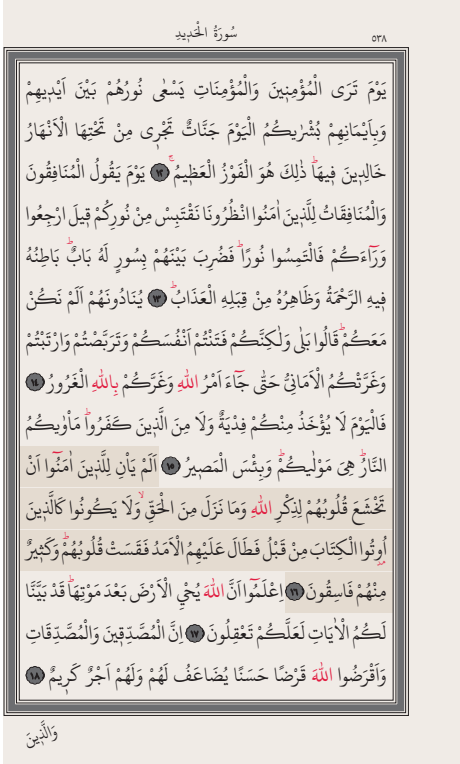 سُورَةُ الْحَدِيدِ ٥٣٨
يَوْمَ تَرَى الْمُؤْمِنِينَ وَالْمُؤْمِنَاتِ يَسْعٰى نُورُهُمْ بَيْنَ اَيْدِيهِمْ
وَبِاَيْمَانِهِمْ بُشْرٰيكُمُ الْيَوْمَ جَنَّاتٌ تَجْرِى مِنْ تَحْتِهَا الْاَنْهَارُ
خَالِدِينَ فِيهَاۜ ذٰلِكَ هُوَ الْفَوْزُ الْعَظِيمُۚ ﴿١٢﴾ يَوْمَ يَقُولُ الْمُنَافِقُونَ
وَالْمُنَافِقَاتُ لِلَّذِينَ اٰمَنُوا انْظُرُونَا نَقْتَبِسْ مِنْ نُورِكُمْ قِيلَ ارْجِعُوا
وَرَٓاءَكُمْ فَالْتَمِسُوا نُورًاۜ فَضُرِبَ بَيْنَهُمْ بِسُورٍ لَهُ بَابٌۜ بَاطِنُهُ
فِيهِ الرَّحْمَةُ وَظَاهِرُهُ مِنْ قِبَلِهِ الْعَذَابُۜ ﴿١٣﴾ يُنَادُونَهُمْ اَلَمْ نَكُنْ
مَعَكُمْۜ قَالُوا بَلٰى وَلٰكِنَّكُمْ فَتَنْتُمْ اَنْفُسَكُمْ وَتَرَبَّصْتُمْ وَارْتَبْتُمْ
وَغَرَّتْكُمُ الْاَمَانِىُّ حَتّٰى جَٓاءَ اَمْرُ اللّٰهِ وَغَرَّكُمْ بِاللّٰهِ الْغَرُورُ ﴿١٤﴾
فَالْيَوْمَ لَا يُؤْخَذُ مِنْكُمْ فِدْيَةٌ وَلَا مِنَ الَّذِينَ كَفَرُواۜ مَأْوٰيكُمُ
النَّارُۜ هِىَ مَوْلٰيكُمْۜ وَبِئْسَ الْمَصِيرُ ﴿١٥﴾ اَلَمْ يَأْنِ لِلَّذِينَ اٰمَنُٓوا اَنْ
تَخْشَعَ قُلُوبُهُمْ لِذِكْرِ اللّٰهِ وَمَا نَزَلَ مِنَ الْحَقِّۙ وَلَا يَكُونُوا كَالَّذِينَ
اُوتُوا الْكِتَابَ مِنْ قَبْلُ فَطَالَ عَلَيْهِمُ الْاَمَدُ فَقَسَتْ قُلُوبُهُمْۜ وَكَثِيرٌ
مِنْهُمْ فَاسِقُونَ ﴿١٦﴾ اِعْلَمُٓوا اَنَّ اللّٰهَ يُحْيِ الْاَرْضَ بَعْدَ مَوْتِهَاۜ قَدْ بَيَّنَّا
لَكُمُ الْاٰيَاتِ لَعَلَّكُمْ تَعْقِلُونَ ﴿١٧﴾ اِنَّ الْمُصَّدِّقِينَ وَالْمُصَّدِّقَاتِ
وَاَقْرَضُوا اللّٰهَ قَرْضًا حَسَنًا يُضَاعَفُ لَهُمْ وَلَهُمْ اَجْرٌ كَرِيمٌ ﴿١٨﴾
وَالَّذِينَ